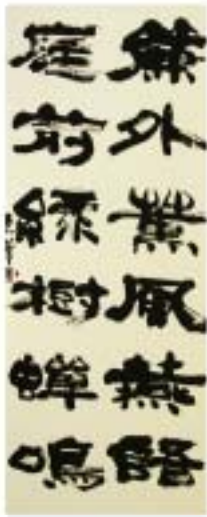 簾外薰風燕語
庭前綠樹蟬鳴